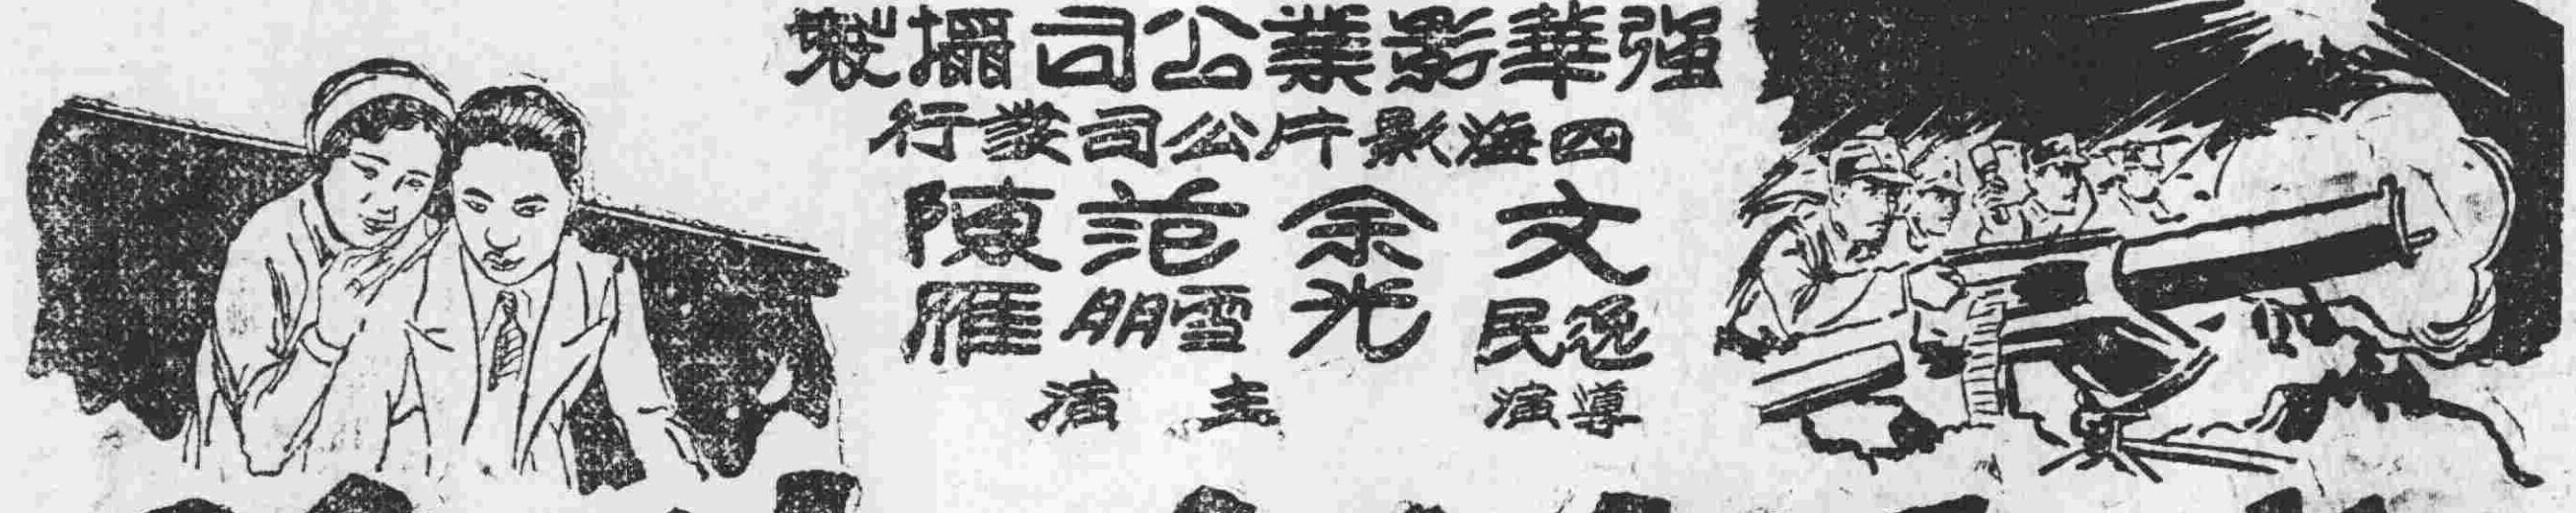 强華影業公司攝製
四海影片公司發行
文逸民
導演
余光
范雪朋
陳雁
主演